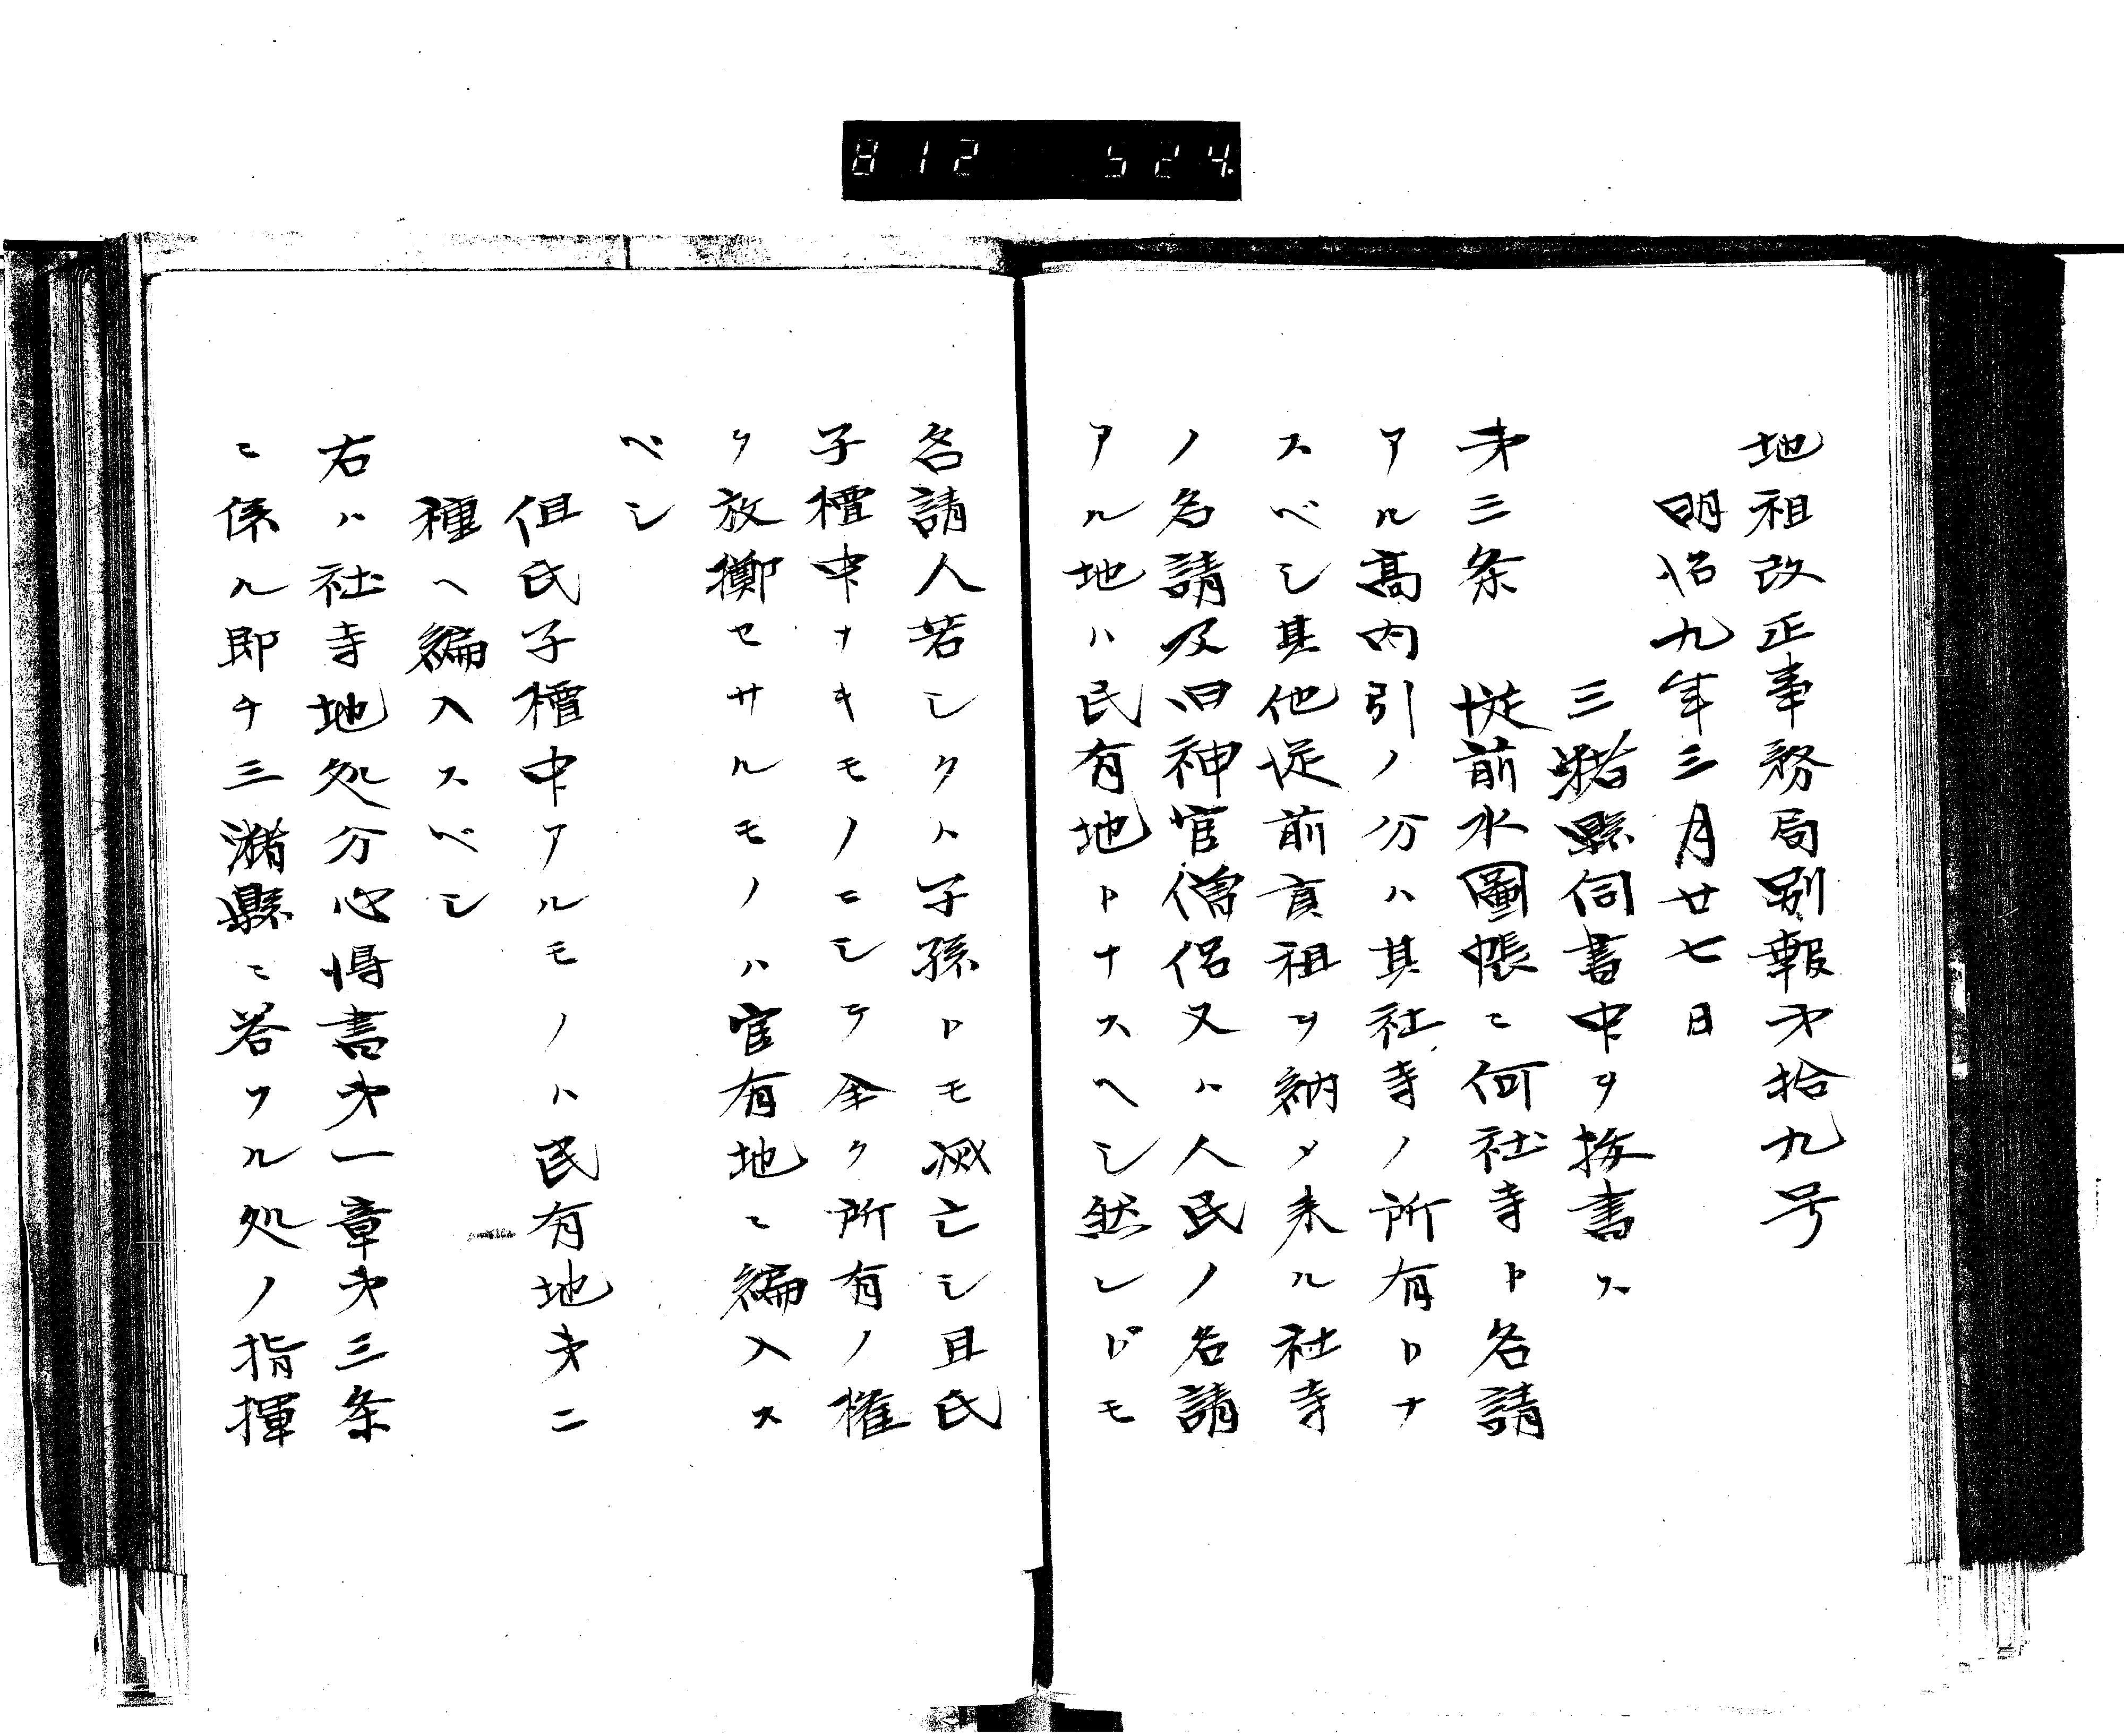 812 524
地祖改正事務局別報第拾九号
明治九年三月廿七日
三潴縣伺書中ヲ抜書ス
第三条 従前水圖帳ニ何社寺ト名請
アル高内引ノ分ハ其社寺ノ所有トナ
スベシ其他従前貢祖ヲ納メ来ル社寺
ノ名請及旧神官僧侶又ハ人民ノ名請
アル地ハ民有地トナスヘシ然レドモ
名請人若シクハ子孫トモ滅亡シ且氏
子檀中ナキモノニシテ全ク所有ノ権
ヲ放擲セサルモノハ官有地ニ編入ス
ベシ
但氏子檀中アルモノハ民有地第二
種ヘ編入スベシ
右ハ社寺地処分心得書第一章第三条
ニ係ル即チ三潴縣ニ答フル処ノ指揮